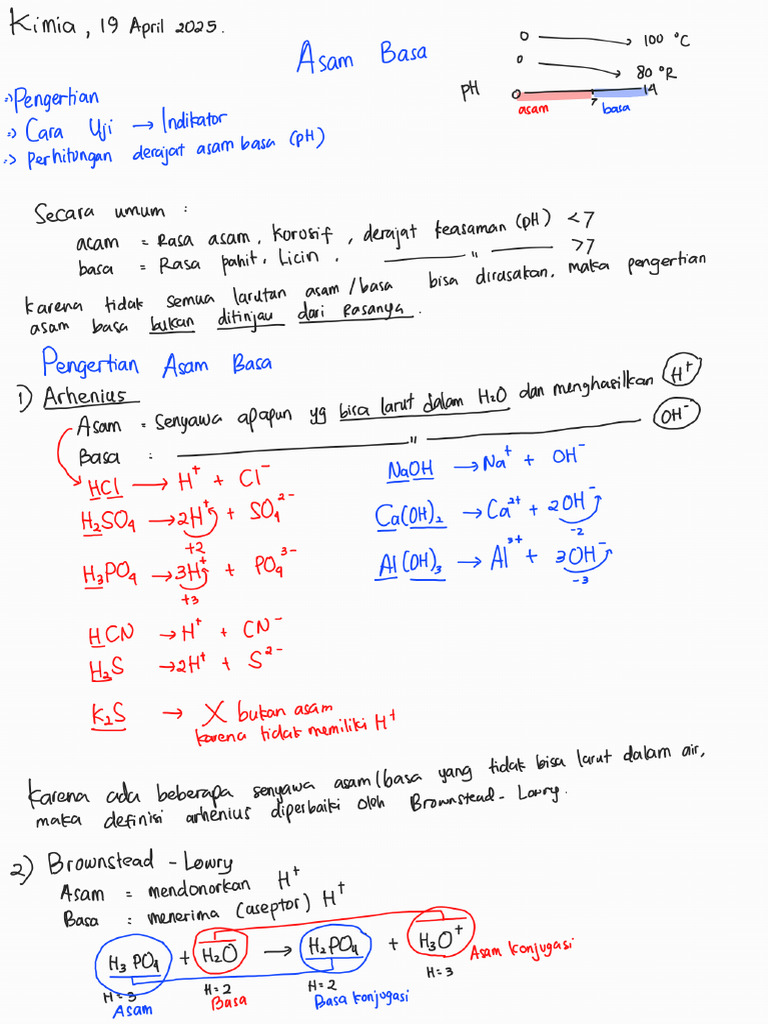 Kimia, 19 April 2025.
Asam Basa
0 → 100 °C
0 → 80 °R
pH 0 7 14
asam basa
:> Pengertian
:> Cara Uji → Indikator
:> Perhitungan derajat asam basa (pH)
Secara umum :
acam = Rasa asam, Korosif, derajat keasaman (pH) <7
basa = Rasa pahit, Licin, —— " —— >7
Karena tidak semua larutan asam/basa bisa dirasakan, maka pengertian
asam basa bukan ditinjau dari Rasanya.
Pengertian Asam Basa
1) Arhenius
Asam = Senyawa apapun yg bisa larut dalam H2O dan menghasilkan H⁺
Basa : —— " —— OH⁻
HCl → H⁺ + Cl⁻
NaOH → Na⁺ + OH⁻
H₂SO₄ → 2H⁺ + SO₄²⁻
+2
Ca(OH)₂ → Ca²⁺ + 2OH⁻
-2
H₃PO₄ → 3H⁺ + PO₄³⁻
+3
Al(OH)₃ → Al³⁺ + 3OH⁻
-3
HCN → H⁺ + CN⁻
H₂S → 2H⁺ + S²⁻
K₂S → X bukan asam
karena tidak memiliki H⁺
Karena ada beberapa senyawa asam/basa yang tidak bisa larut dalam air,
maka definisi arhenius diperbaiki oloh Brownstead - Lowry.
2) Brownstead - Lowry
Asam = mendonorkan H⁺
Basa : menerima (aseptor) H⁺
H₃PO₄ + H₂O → H₂PO₄ + H₃O⁺ Asam konjugasi
H=3 H=2 H=2 H=3
Asam Basa Basa konjugasi